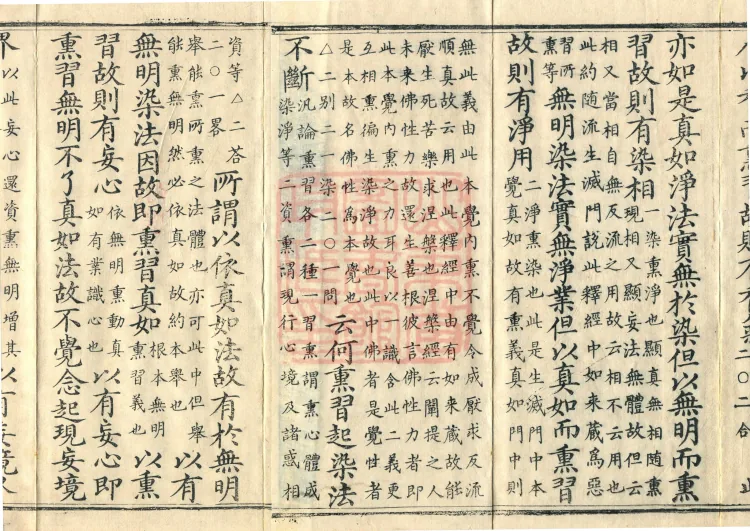 亦如是真如淨法實無於染但以無明而熏
習故則有染相
一染熏淨也顯真無相隨熏
現相又顯妄法無體故但云
相又當相自無反流之用故云相不云用也
此約隨流生滅門說此釋經中如來藏為惡
習所
熏等
無明染法實無淨業但以真如而熏習
故則有淨用
二淨熏染也此是生滅門中本
覺真如故有熏義真如門中則
無此義由此本覺內熏不覺令成厭求反流
順真故云用也此釋經中由有如來藏故能
厭生死苦樂求涅槃也涅槃經云闡提之人
未來佛性力故還生善根彼言佛性力者即
此本覺內熏之力耳良以一識含此二義更
互相熏徧生染淨故也此中佛者是覺性者
是本故名佛性為本覺也
△二別二一染二〇一問
云何熏習起染法
不斷
汎論熏習各二種一習熏謂熏心體成
染淨等二資熏謂現行心境及諸惑相
資等△二荅
二〇一畧
所謂以依真如法故有於無明
舉能熏所熏之法體也亦可此中但舉
能熏無明然必依真如故約本舉也
以有
無明染法因故即熏習真如
根本無明
熏習義也
以熏
習故則有妄心
依無明熏動真
如有業識心也
以有妄心即
熏習無明不了真如法故不覺念起現妄境
界
以此妄心還資熏無明增其